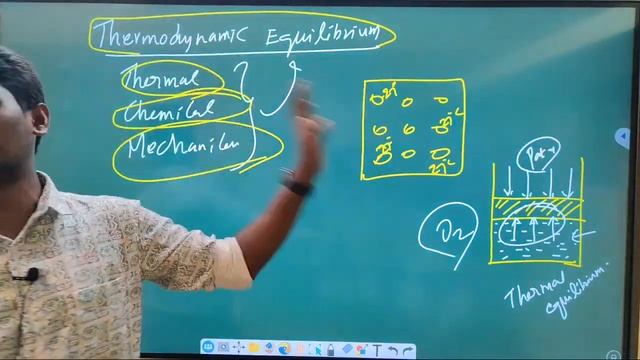 Thermodynamic Equilibrium
Thermal
Chemical
Mechanical
25°C
25°C
25°C
25°C
Thermal
equilibrium.